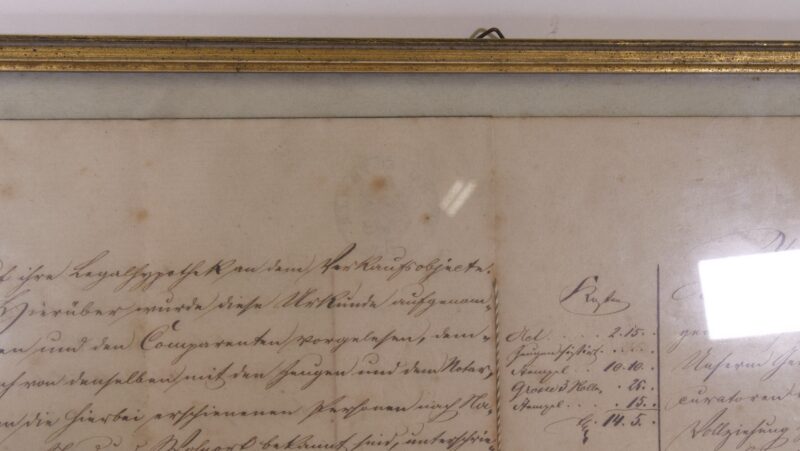 ihre Legalhypothek an dem Verkaufsobjecte.
Hierüber wurde diese Urkunde aufgenom-
und den Comparenten vorgelesen, dem-
von denselben mit den Zeugen und dem Notar,
die hierbei erschienenen Personen nach Na-
bekannt sind, unterschrie-
Kosten
Act . . . . 2.15.
Stempel . . 10.10.
Grosse 3 Rollen . 25.
Stempel . . . 15.
14.5.
Unserm
curatoren
Vollziehung